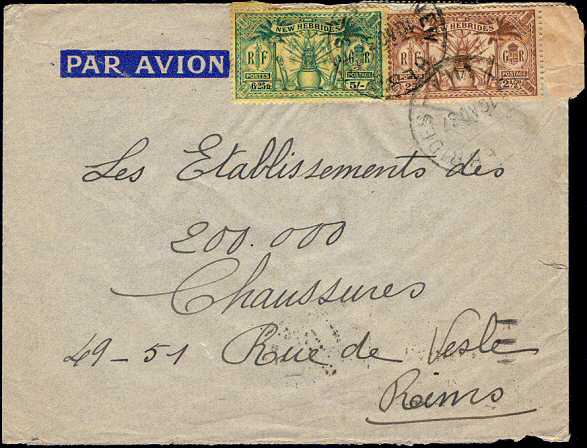 PAR AVION
NEW HEBRIDES
R F
G R
POSTES
POSTAGE
6.25 5/-
NEW HEBRIDES
R F
G R
POSTAGE
Les Etablissements des
200.000
Chaussures
49-51 Rue de Vesle
Reims